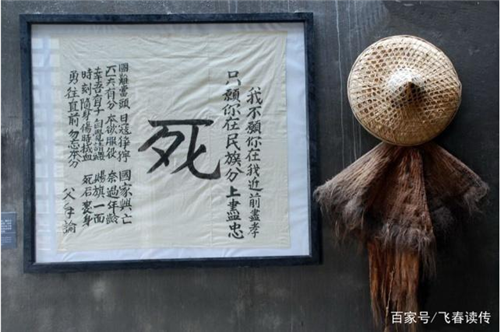 我不願你在我近前盡孝
只願你在民族分上盡忠
死
國難當頭 日寇猙獰 國家興亡
匹夫有分 本欲服役 奈過年齡
幸吾有子 自覺請纓 賜旗一面
時刻隨身 傷時拭血 死后裹身
勇往直前 勿忘本分
父手諭
百家号/飞春读传